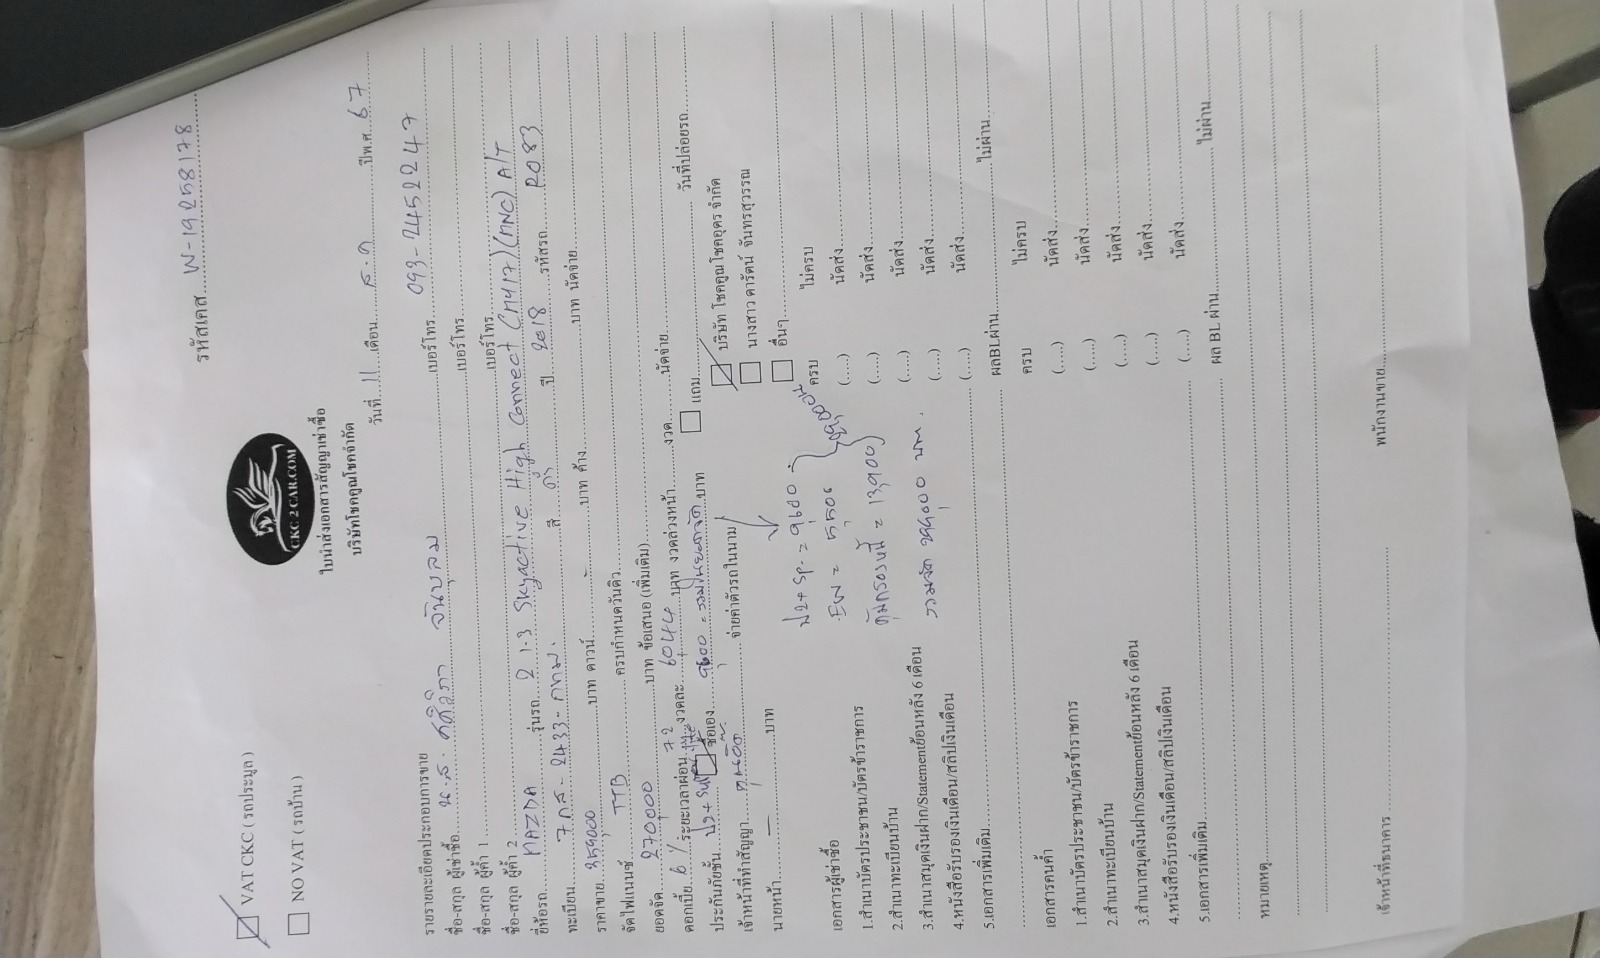 รหัสเคส W-19258178
VAT CKC ( รถประมูล )
NO VAT ( รถบ้าน )
CKC 2 CAR.COM
ใบนำส่งเอกสารสัญญาเช่าซื้อ
บริษัทโชคคูณโชคจำกัด
วันที่ 11 เดือน ส.ค ปีพ.ศ. 67
รายรายละเอียดประกอบการขาย
ชื่อ-สกุล ผู้เช่าซื้อ น.ส. เบอร์โทร 093-2452247
ชื่อ-สกุล ผู้ค้ำ 1 เบอร์โทร
ชื่อ-สกุล ผู้ค้ำ 2 เบอร์โทร
ยี่ห้อรถ MAZDA รุ่นรถ 2 1.3 Skyactive High Connect (MNC) A/T
ทะเบียน 7กส-2433-กทม. สี ดำ ปี 2018 รหัสรถ R083
ราคาขาย 359000 บาท ดาวน์ - บาท ค้าง บาท นัดจ่าย
จัดไฟแนนซ์ TTB ครบกำหนดวันคิว
ยอดจัด 270,000 บาท ข้อเสนอ (เพิ่มเติม)
ดอกเบี้ย 6% ระยะเวลาผ่อน 72 งวดละ 6,044 บาท งวดล่วงหน้า งวด นัดจ่าย
ประกันภัยชั้น ซื้อเอง 9,600 บาท แถม วันที่ปล่อยรถ
เจ้าหน้าที่ทำสัญญา จ่ายค่าตัวรถในนาม บริษัท โชคคูณโชคอุดร จำกัด
นายหน้า - บาท นางสาว ดารัตน์ จันทรสุวรรณ
อื่นๆ
ป2+ SP. = 9,600
EW = 5,506
คุ้มครองหนี้ = 13,900
รวมจัด 299,000 บาท.
เอกสารผู้เช่าซื้อ ครบ ไม่ครบ
1.สำเนาบัตรประชาชน/บัตรข้าราชการ (.....) นัดส่ง
2.สำเนาทะเบียนบ้าน (.....) นัดส่ง
3.สำเนาสมุดเงินฝาก/Statementย้อนหลัง 6 เดือน (.....) นัดส่ง
4.หนังสือรับรองเงินเดือน/สลิปเงินเดือน (.....) นัดส่ง
5.เอกสารเพิ่มเติม (.....) นัดส่ง
ผลBLผ่าน ไม่ผ่าน
เอกสารคนค้ำ ครบ ไม่ครบ
1.สำเนาบัตรประชาชน/บัตรข้าราชการ (.....) นัดส่ง
2.สำเนาทะเบียนบ้าน (.....) นัดส่ง
3.สำเนาสมุดเงินฝาก/Statementย้อนหลัง 6 เดือน (.....) นัดส่ง
4.หนังสือรับรองเงินเดือน/สลิปเงินเดือน (.....) นัดส่ง
5.เอกสารเพิ่มเติม (.....) นัดส่ง
ผล BL ผ่าน ไม่ผ่าน
หมายเหตุ
เจ้าหน้าที่ธนาคาร พนักงานขาย